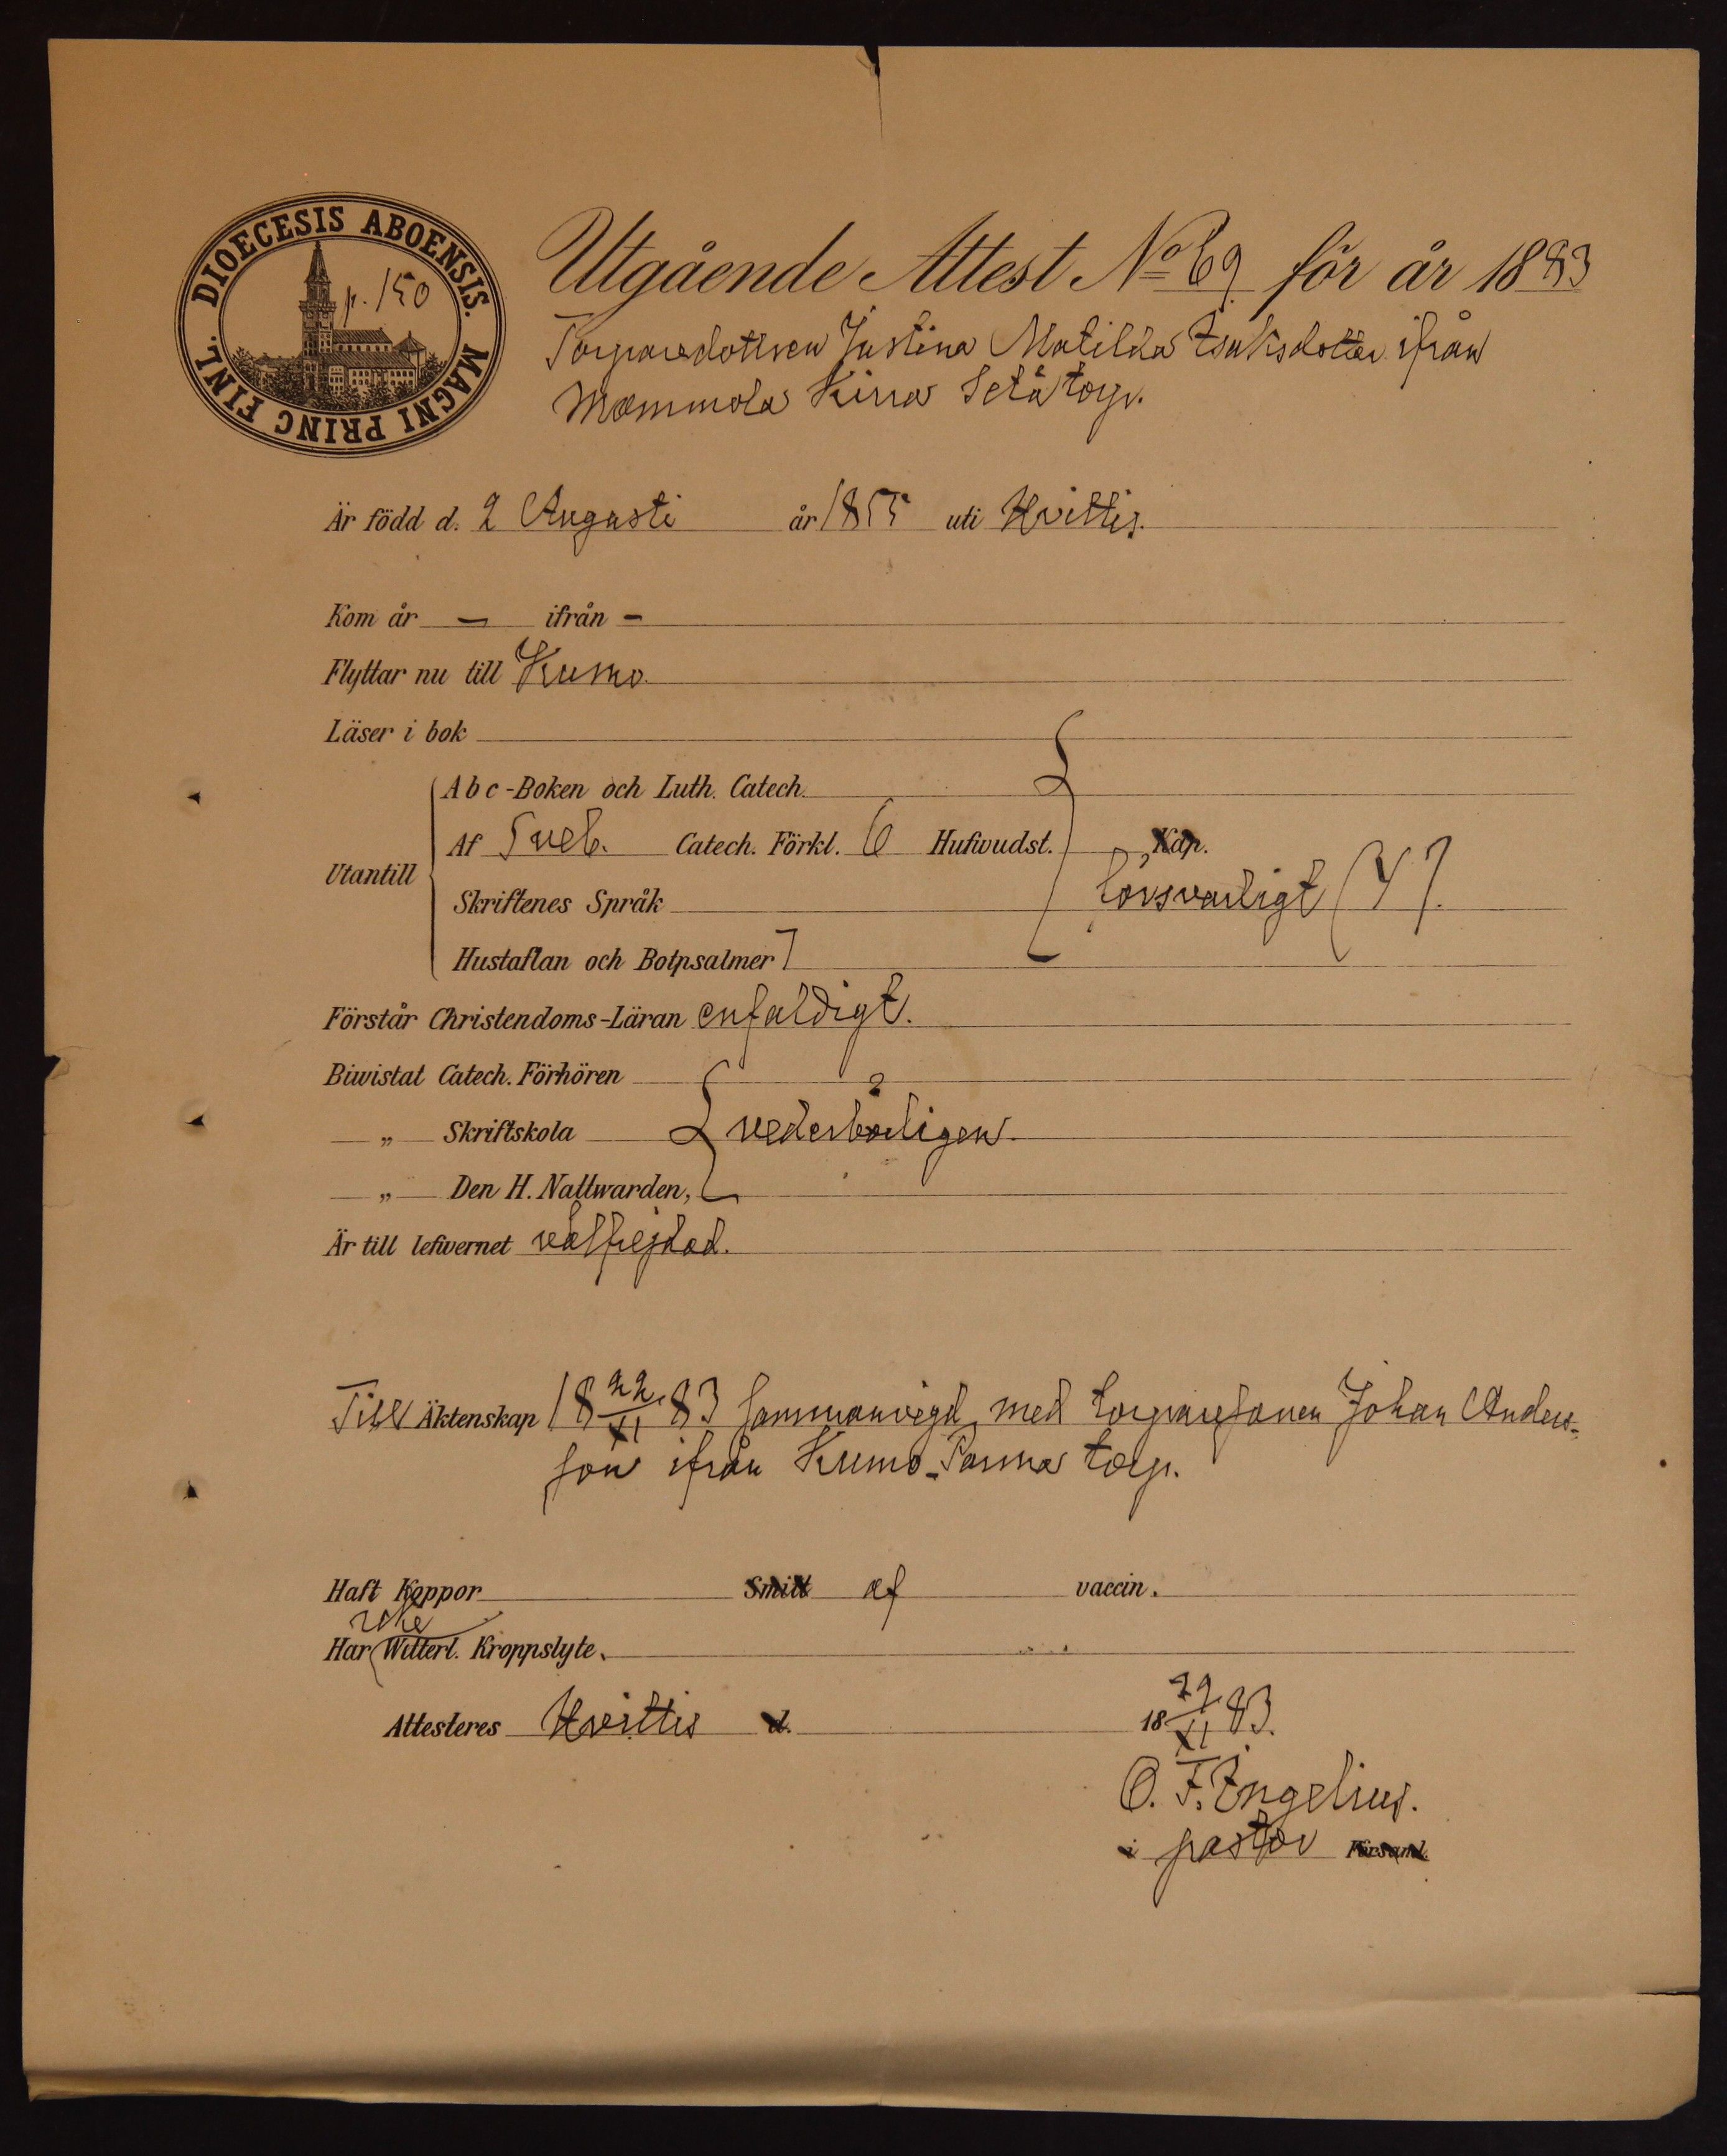 DIOECESIS ABOENSIS. MAGNI PRINC FINL.
p. 150
Utgående Attest No 69 för år 1883
Torparedottren Justina Matilda Isaksdotter ifrån
Mommola Kirra Setä torp.
Är född d. 2 Augusti år 1855 uti Hvittis.
Kom år — ifrån —
Flyttar nu till Kumo.
Läser i bok
Abc-Boken och Luth. Catech.
Af Sveb. Catech. Förkl. 6 Hufwudst. Kap.
Utantill
Skriftenes Språk försvarligt
Hustaflan och Botpsalmer
Förstår Christendoms-Läran enfaldigt.
Biwistat Catech. Förhören
„ Skriftskola vederbörligen.
„ Den H. Nattwarden,
Är till lefwernet välfrejdad.
Till Äktenskap 18 22/XI 83 sammanvigd med torparesonen Johan Anders-
son ifrån Kumo Parma torp.
Haft Koppor Smitt af vaccin.
icke
Har Witterl. Kroppslyte.
Attesteres Hvittis d. 18 29/XI 83.
O. F. Engelius.
i pastor Församl.